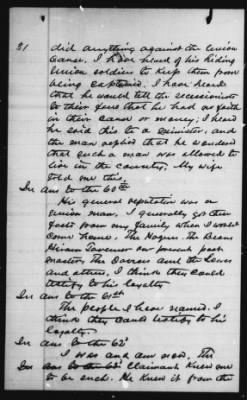 21
did anything against the Union
Cause. I have heard of his hiding
Union soldiers to keep them from
being captured. I have heard
that he would tell the secessionists
to their faces that he had no faith
in their cause or money; I heard
he said this to a minister, and
the man replied that he wondered
that such a man was allowed to
live in the country; My wife
told me this.
In ans to the 60th
His general reputation was a
Union man. I generally got these
facts from my family when I would
come home. The Hogues the Deans
Hiram Taverner our present post
master, The and the
and others. I think they could
testify to his loyalty
In ans to the 61st
The people I have named. I
think they could testify to his
loyalty.
In ans to the 62d
I was and am now. The
In ans to the 63d Claimant knew me
to be such. He knew it from the